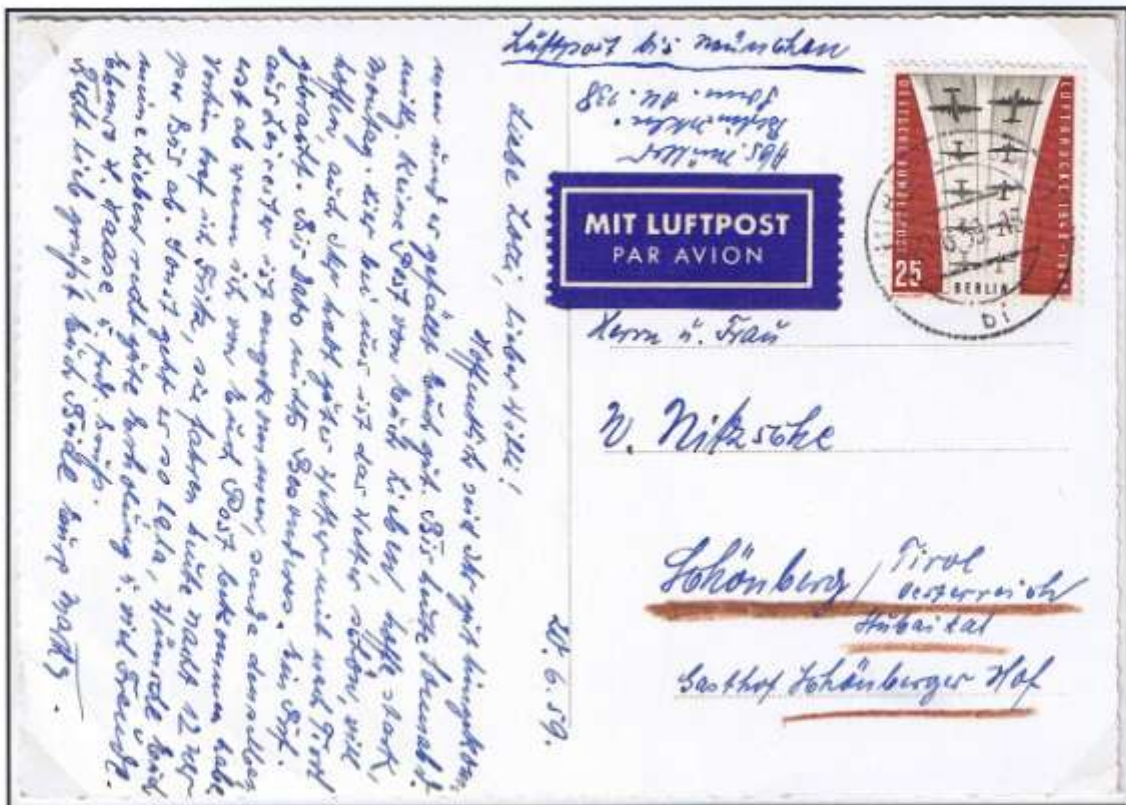 Luftpost bis München
Abs. Müller
Berlin
Sonn. All. 138
DEUTSCHE BUNDESPOST
LUFTBRÜCKE
25
BERLIN
MIT LUFTPOST
PAR AVION
Herrn u. Frau
W. Nitzsche
Schönberg / Tirol
Oesterreich
Stubaital
Gasthof Schönberger Hof
20.6.59.
Liebe Lotti, lieber Willi!
Hoffentlich seid Ihr gut hingekom-
men und es gefällt Euch gut. Bis heute Sonnabd.
mittg. keine Post von Euch Lieben, hoffe stark,
Montag. Hier bei uns ist das Wetter schön, will
hoffen, auch Ihr habt gutes Wetter mit nach Tirol
gebracht. Bis dato nichts Besonderes. Ein Brf.
aus Leicester ist angekommen, sende denselben
erst ab wenn ich von Euch Post bekommen habe
Vorhin traf ich Fritz, sie fahren heute Nacht 12 Uhr
per Bus ab. Sonst geht es so lala, Wünsche Euch
meine Lieben recht gute Erholung u. viel Freude.
Ebenso v. Haase
Recht lieb grüßt Euch Beide Eure